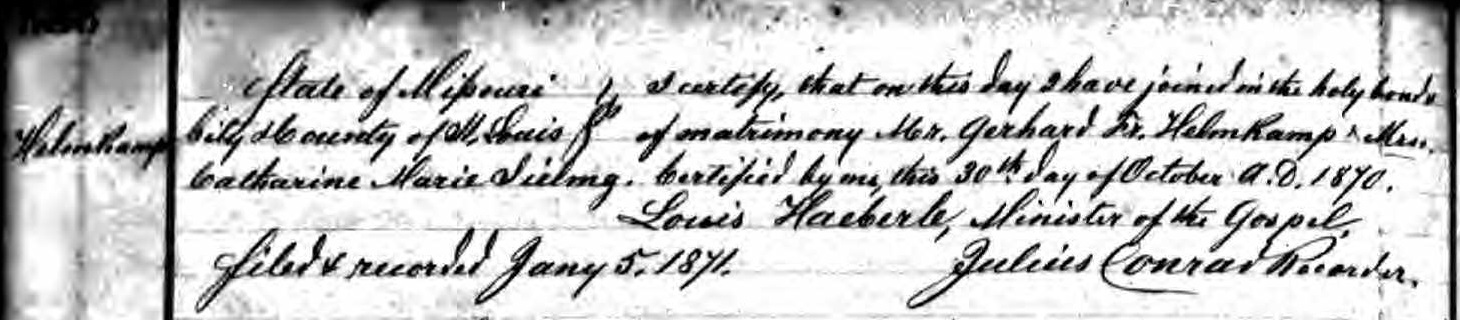 Helmkamp
State of Missouri } ss I certify, that on this day I have joined in the holy bonds
City & County of St. Louis } of matrimony Mr. Gerhard Fr. Helmkamp & Mrs.
Catharine Marie Sielmg. Certified by me, this 30th day of October A.D. 1870.
Louis Haeberle, Minister of the Gospel.
Filed & recorded Jany 5. 1871. Julius Conrad Recorder.